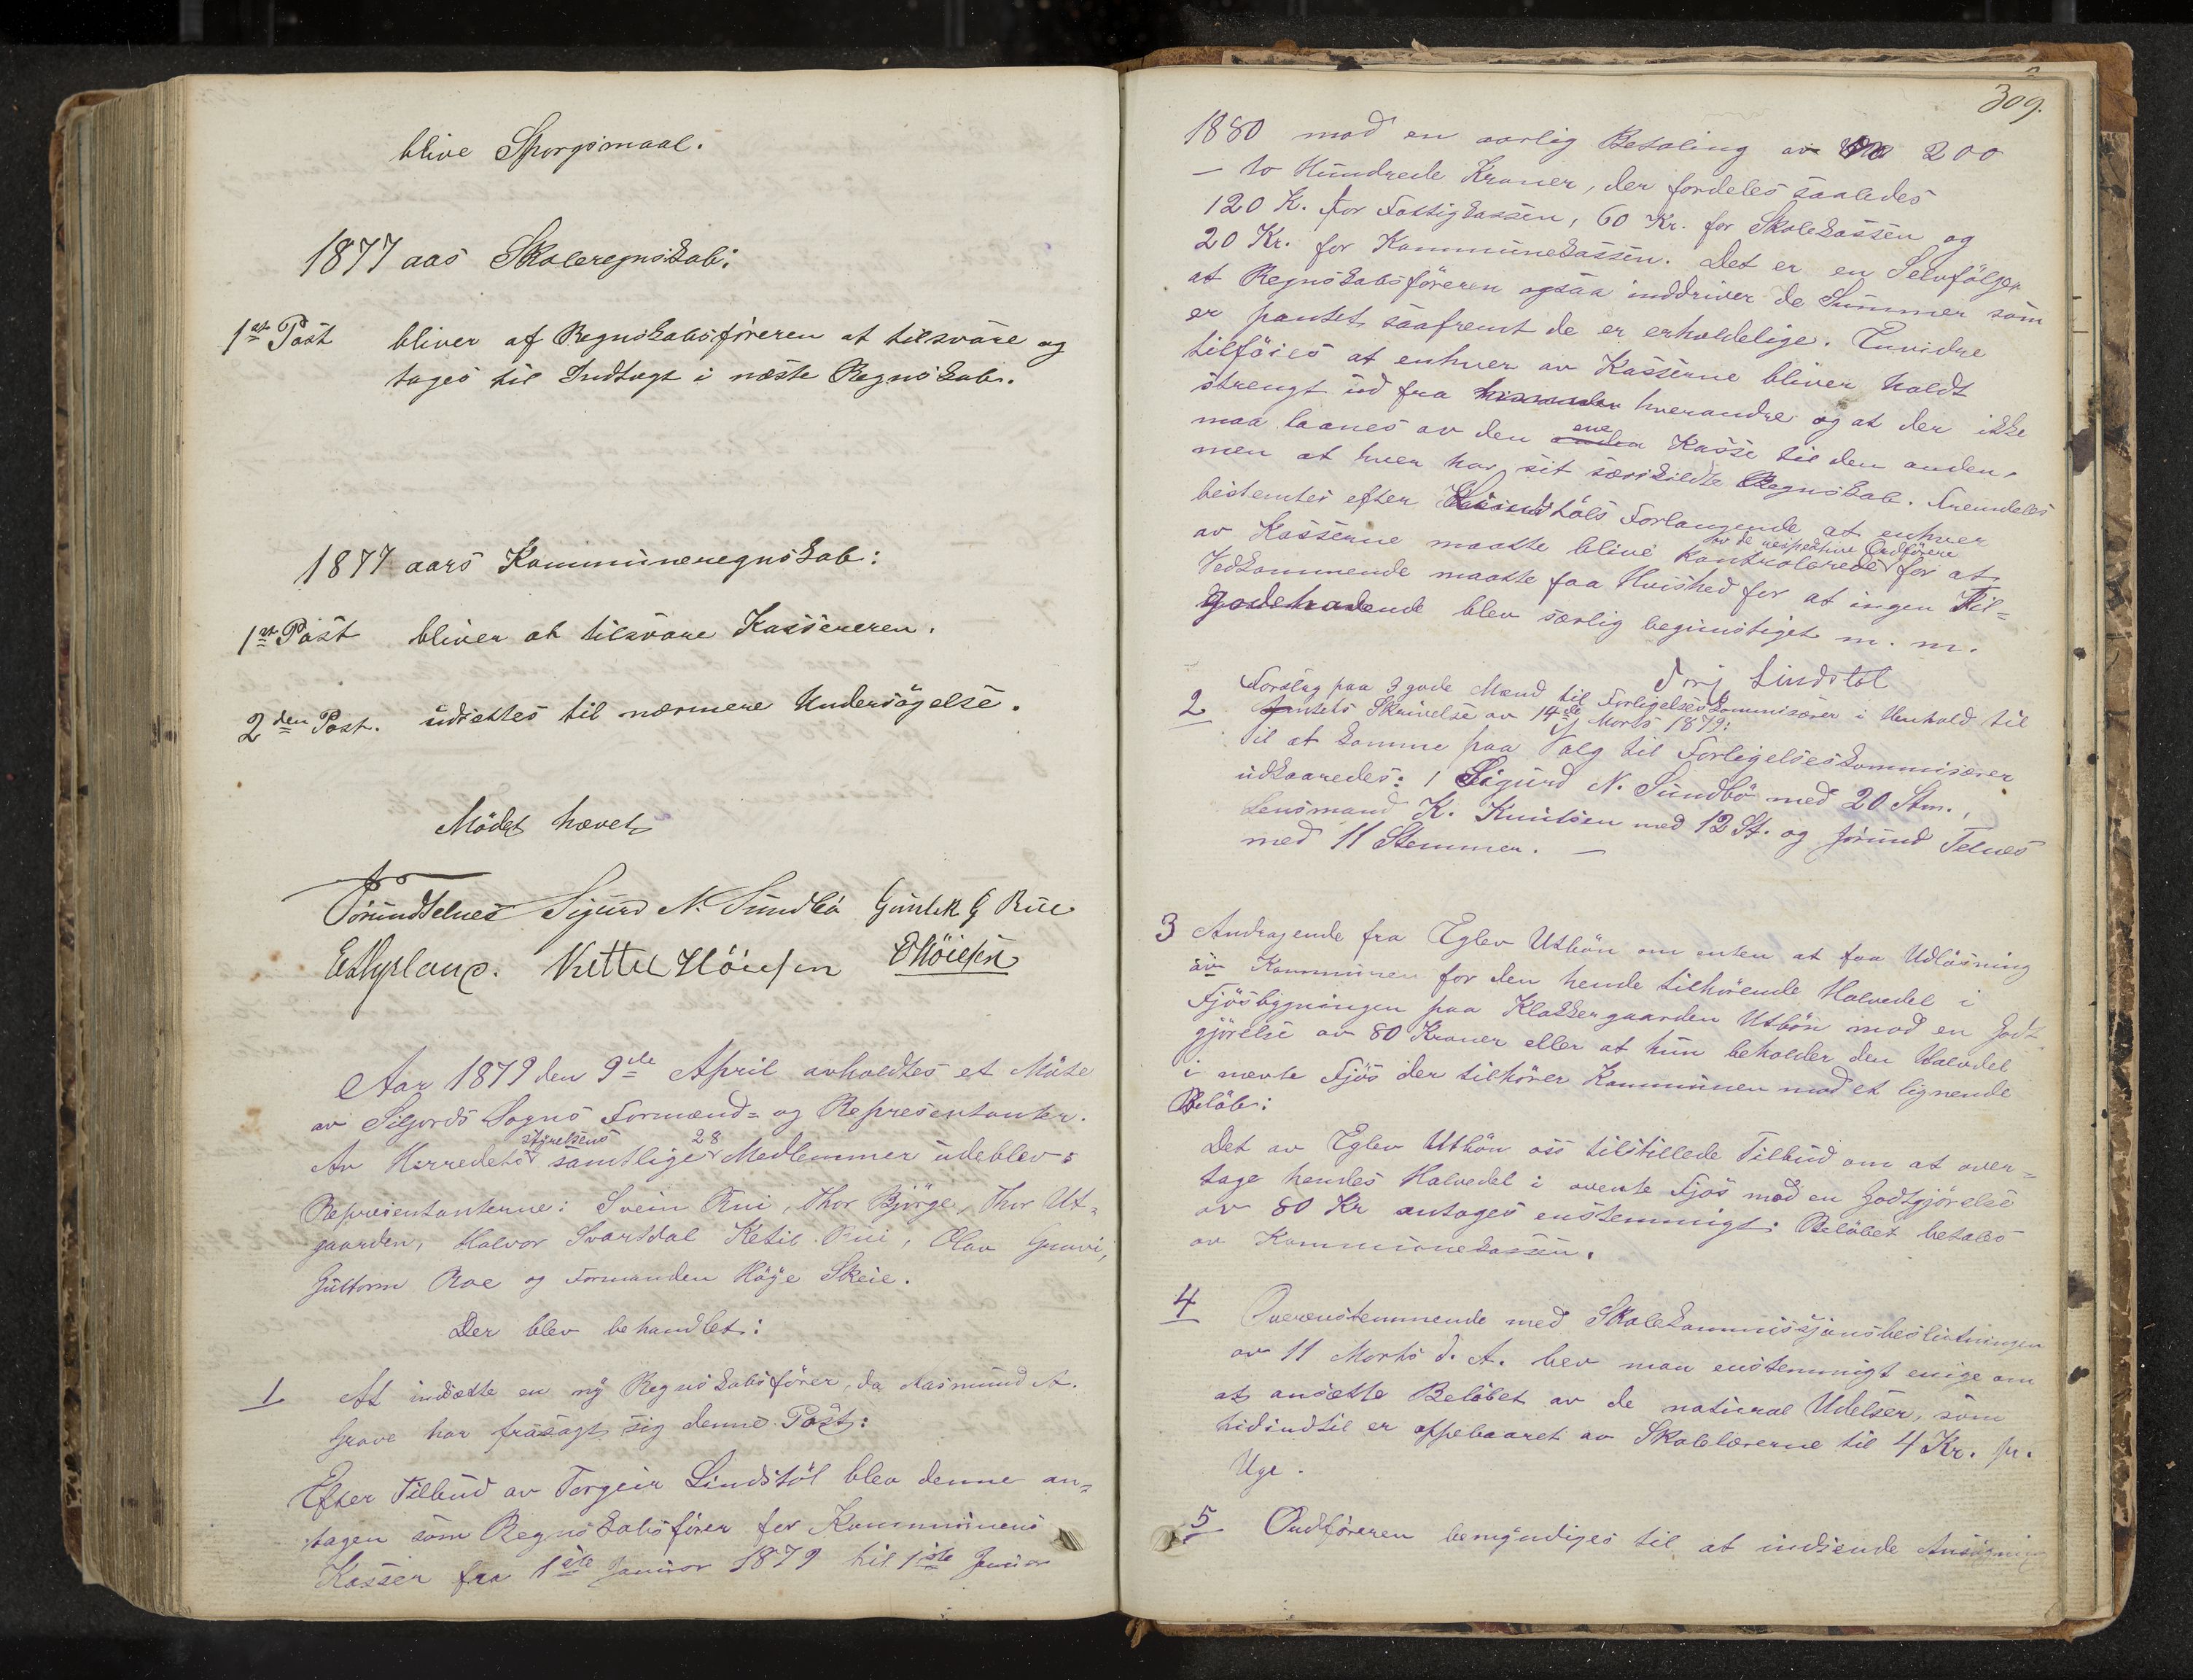 blive Spørgsmaal.
1877 aas Skoleregnskab:
1ste Post bliver af Regnskabsføreren at tilsvare og
tages til Indtægt i næste Regnskab.
1877 aars Kommuneregnskab:
1ste Post bliver at tilsvare Kassereren.
2den Post. udsættes til nærmere Undersøgelse.
Mödet hævet
Jörund Telnes Sigurd N. Sundbö Gunlek G Rue
Kittel Höiesen OHöiesen
Aar 1879 den 9de April avholdtes et Möte
av Siljords Sogns Formænd= og Representanter.
Av Herredets styrelsens samtlige 28 Medlemmer udeblev:
Representanterne: Svein Rui, Thor Bjørge, Thor Ut=
gaarden, Halvor Svartdal Ketil Rui, Olav Gravi,
Guttorm Roe og Formanden Höije Skeie.
Der blev behandlet:
1 At indsætte en ny Regnskabsfører, da Aasmund A.
Grave har frasagt sig denne Post:
Efter Tilbud av Torgeir Lindstöl blev denne an=
tagen som Regnskabsfører for Kommunens
Kasser fra 1ste Januar 1879 til 1ste Januar
309.
1880 mod en aarlig Betaling av 200
– to Hundrede Kroner, der fordeles saaledes
120 K. for Fattigkassen, 60 Kr. for Skolekassen og
20 Kr. for Kommunekassen. Det er en Selvfølge
at Regnskabsföreren ogsaa inddriver de Summer som
er pantet, saafremt de er erholdelige. Envidre
tilföies at enhver av Kasserne bliver holdt
strengt ud fra hverandre og at der ikke
maa laanes av den ene Kasse til den anden,
men at hver har sit særskildte Regnskab. Fremdeles
bestemtes efter Lindstöls Forlangende at enhver
av Kasserne maatte blive kontrolerede av de respektive Ordförere for at
Vedkommende maatte faa Vished for at ingen Til=
godehavende blev særlig begunstiget m. m.
Torj Lindstöl
2 Forslag paa 3 gode Mænd til Forligelseskommisærer i Henhold til
Amtets Skrivelse av 14de Marts 1879:
Til at komme paa Valg til Forligelseskommisærer
udkaaredes: 1 Sigurd N. Sundbö med 20 Stm.,
Lensmand K. Knutsen med 12 St. og Jørund Telnes
med 11 Stemmer. –
3 Andragende fra Eglev Utbön om enten at faa Udlösning
av Kommunen for den hende tilhörende Halvedel i
Fjösbygningen paa Klokkergaarden Utbön mod en Godt
gjörelse av 80 Kroner eller at hun beholder den Halvdel
i nævte Fjös der tilhörer Kommunen mod et lignende
Belöb:
Det av Eglev Utbön oss tilstillede Tilbud om at over=
tage hendes Halvedel i ovente Fjös mod en Godtgjörelse
av 80 Kr antages enstemmigt: Belöbet betales
av Kommunekassen.
4 Overenstemmende med Skolekommissjonsbeslutningen
av 11 Marts d. A. blev man enstemmigt enige om
at ansætte Belöbet av de natural Udelser, som
hidindtil er oppebaaret av Skolelærerne til 4 Kr. pr.
Uge.
5 Ordföreren bemyndiges til at indsende Ansögning